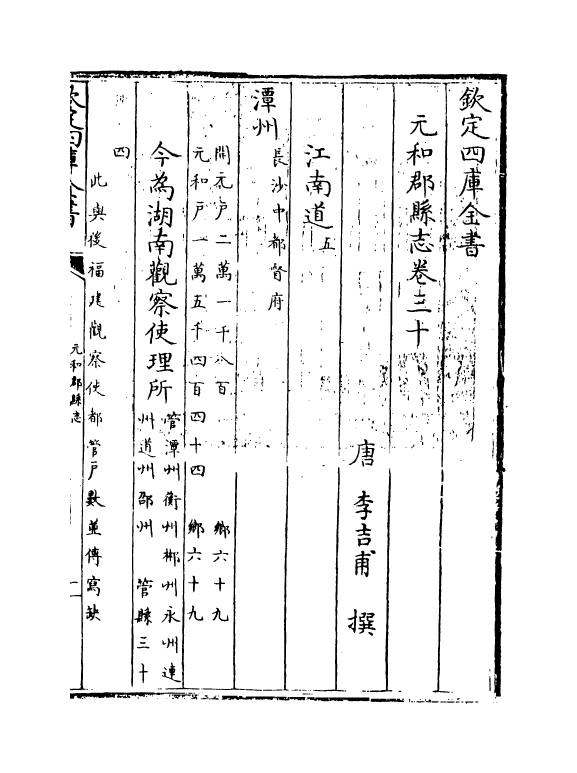 欽定四庫全書
元和郡縣志卷三十
唐 李吉甫 撰
江南道五
潭州長沙中都督府
開元戶二萬一千八百 鄉六十九
元和戶一萬五千四百四十四 鄉六十九
今為湖南觀察使理所管潭州衡州郴州永州連
州道州邵州 管縣三十
四
此與後福建觀察使都管戶數並傳寫缺
欽定四庫全書
元和郡縣志